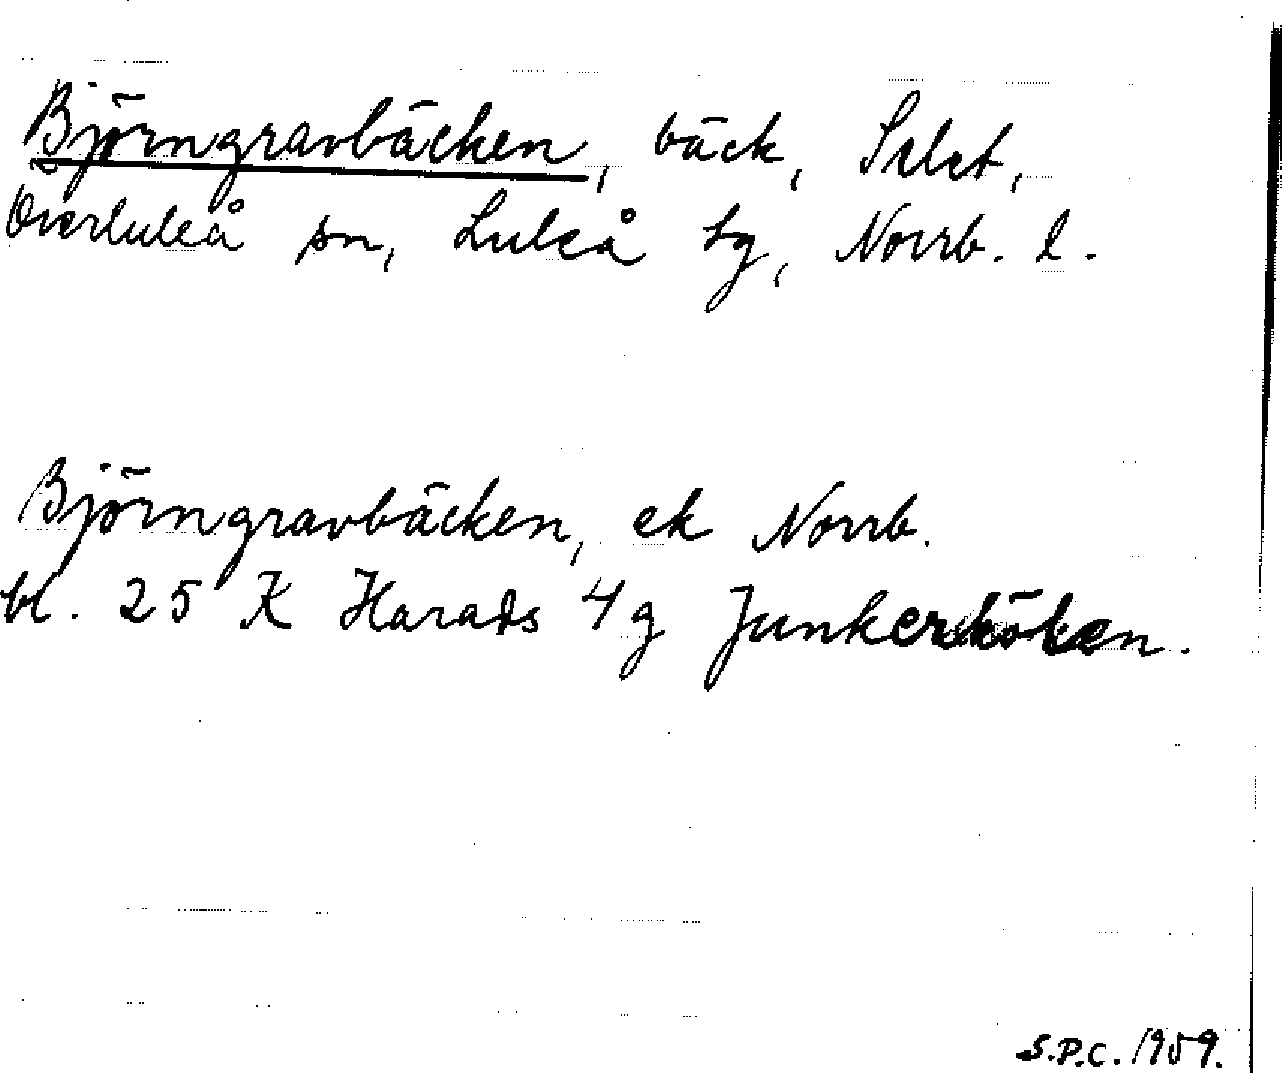 Björngravbäcken, bäck, Selet,
Överluleå sn, Luleå tg, Norrb. l.
Björngravbäcken, ek Norrb.
bl. 25 K Harads 4 g Junkerköken.
S.P.C. 1959.